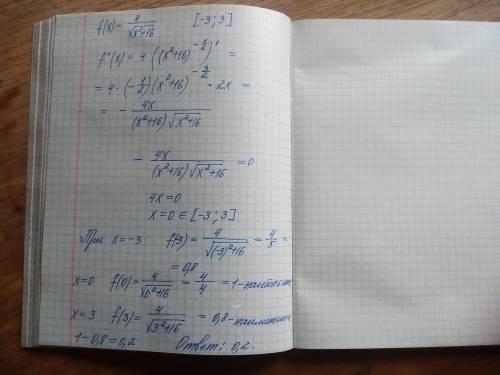 f(x) = 4/√(x²+16)   [-3; 3]
f'(x) = 4 ((x²+16)^(-1/2))' =
= 4·(-1/2)(x²+16)^(-3/2) · 2x =
= - 4x/((x²+16)√(x²+16))
- 4x/((x²+16)√(x²+16)) = 0
4x = 0
x = 0 ∈ [-3; 3]
При x = -3   f(3) = 4/√((-3)²+16) = 4/5 =
= 0,8
x = 0   f(0) = 4/√(0²+16) = 4/4 = 1 -
x = 3   f(3) = 4/√(3²+16) = 0,8 -
1 - 0,8 = 0,2   Ответ: 0,2.